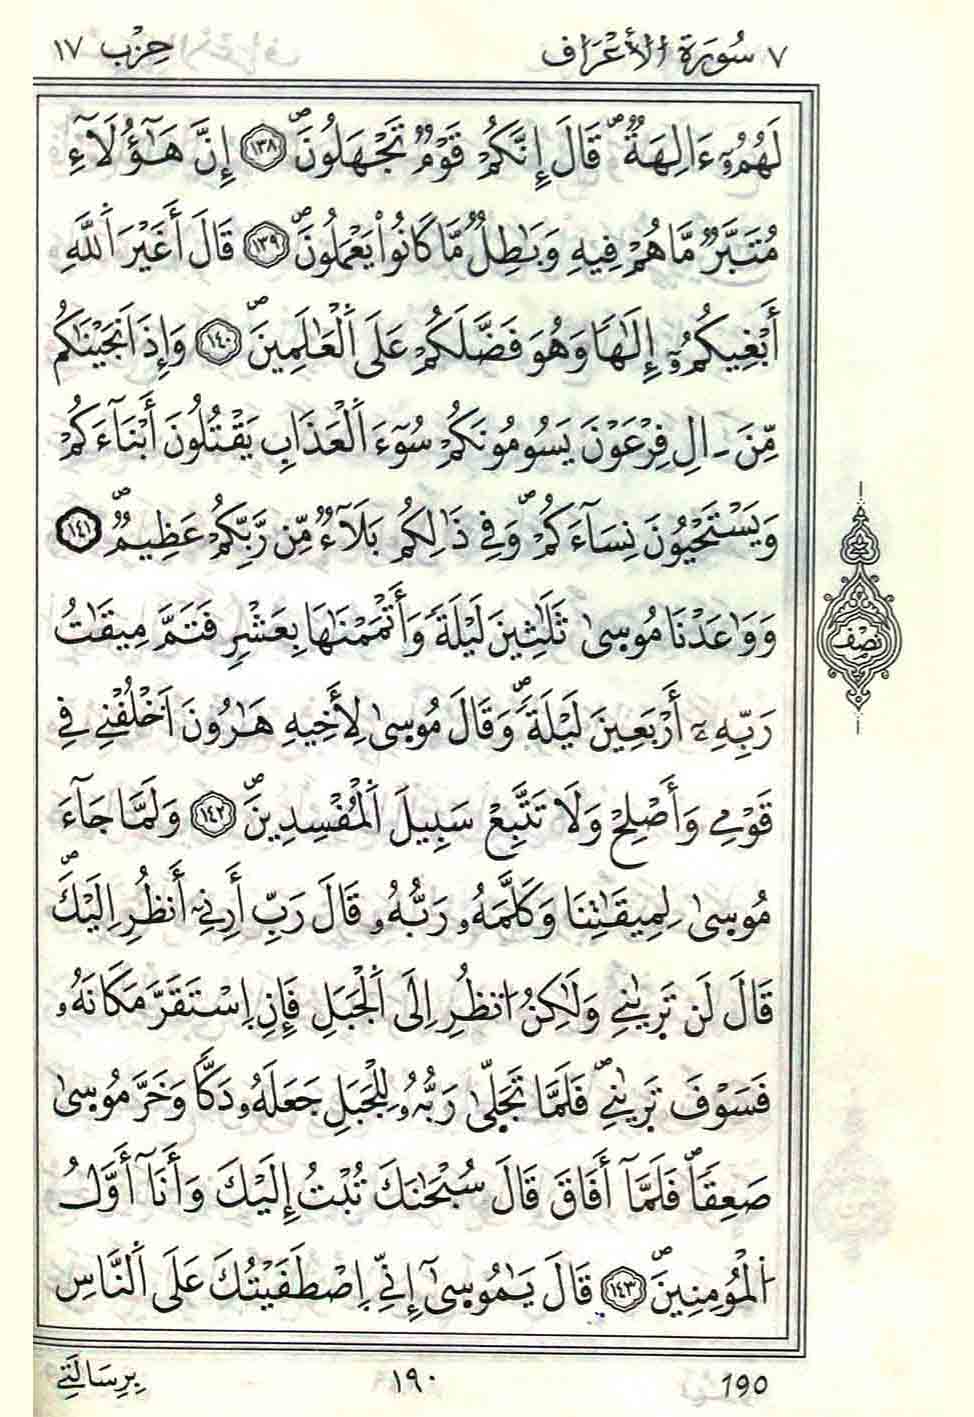 ٧ سُورَةُ الأَعْرَافِ حِزْب ١٧
لَهُمُۥٓ ءَالِهَةٌۖ قَالَ إِنَّكُمْ قَوْمٌ تَجْهَلُونَۖ ١٣٨ إِنَّ هَٰٓؤُلَآءِ
مُتَبَّرٌ مَّا هُمْ فِيهِ وَبَٰطِلٌ مَّا كَانُوا۟ يَعْمَلُونَۖ ١٣٩ قَالَ أَغَيْرَ اَ۬للَّهِ
أَبْغِيكُمُۥٓ إِلَٰهًا وَهُوَ فَضَّلَكُمْ عَلَى اَ۬لْعَٰلَمِينَۖ ١٤٠ وَإِذَ اَنجَيْنَٰكُم
مِّنَ ـ اٰلِ فِرْعَوْنَ يَسُومُونَكُمْ سُوٓءَ اَ۬لْعَذَابِ يَقْتُلُونَ أَبْنَآءَكُمْ
وَيَسْتَحْيُونَ نِسَآءَكُمْۖ وَفِے ذَٰلِكُم بَلَآءٌ مِّن رَّبِّكُمْ عَظِيمٌۖ ١٤١
وَوَٰعَدْنَا مُوسىٰ ثَلَٰثِينَ لَيْلَةً وَأَتْمَمْنَٰهَا بِعَشْرٍ فَتَمَّ مِيقَٰتُ
نصف
رَبِّهِۦٓ أَرْبَعِينَ لَيْلَةًۖ وَقَالَ مُوسىٰ لِأَخِيهِ هَٰرُونَ اَ۟خْلُفْنِے فِے
قَوْمِے وَأَصْلِحْ وَلَا تَتَّبِعْ سَبِيلَ اَ۬لْمُفْسِدِينَۖ ١٤٢ وَلَمَّا جَآءَ
مُوسىٰ لِمِيقَٰتِنَا وَكَلَّمَهُۥ رَبُّهُۥ قَالَ رَبِّ أَرِنِےٓ أَنظُرِ اِلَيْكَۖ
قَالَ لَن تَر۪يٰنِے وَلَٰكِنُ اُ۟نظُرِ اِلَى اَ۬لْجَبَلِ فَإِنِ اِ۪سْتَقَرَّ مَكَانَهُۥ
فَسَوْفَ تَر۪يٰنِےۖ فَلَمَّا تَجَلّىٰ رَبُّهُۥ لِلْجَبَلِ جَعَلَهُۥ دَكًّا وَخَرَّ مُوسىٰ
صَعِقًاۖ فَلَمَّآ أَفَاقَ قَالَ سُبْحَٰنَكَ تُبْتُ إِلَيْكَ وَأَنَآ أَوَّلُ
اُ۬لْمُومِنِينَۖ ١٤٣ قَالَ يَٰمُوسىٰٓ إِنِّے اِ۪صْطَفَيْتُكَ عَلَى اَ۬لنَّاسِ
190 ١٩٠ بِرِسَالَتِے